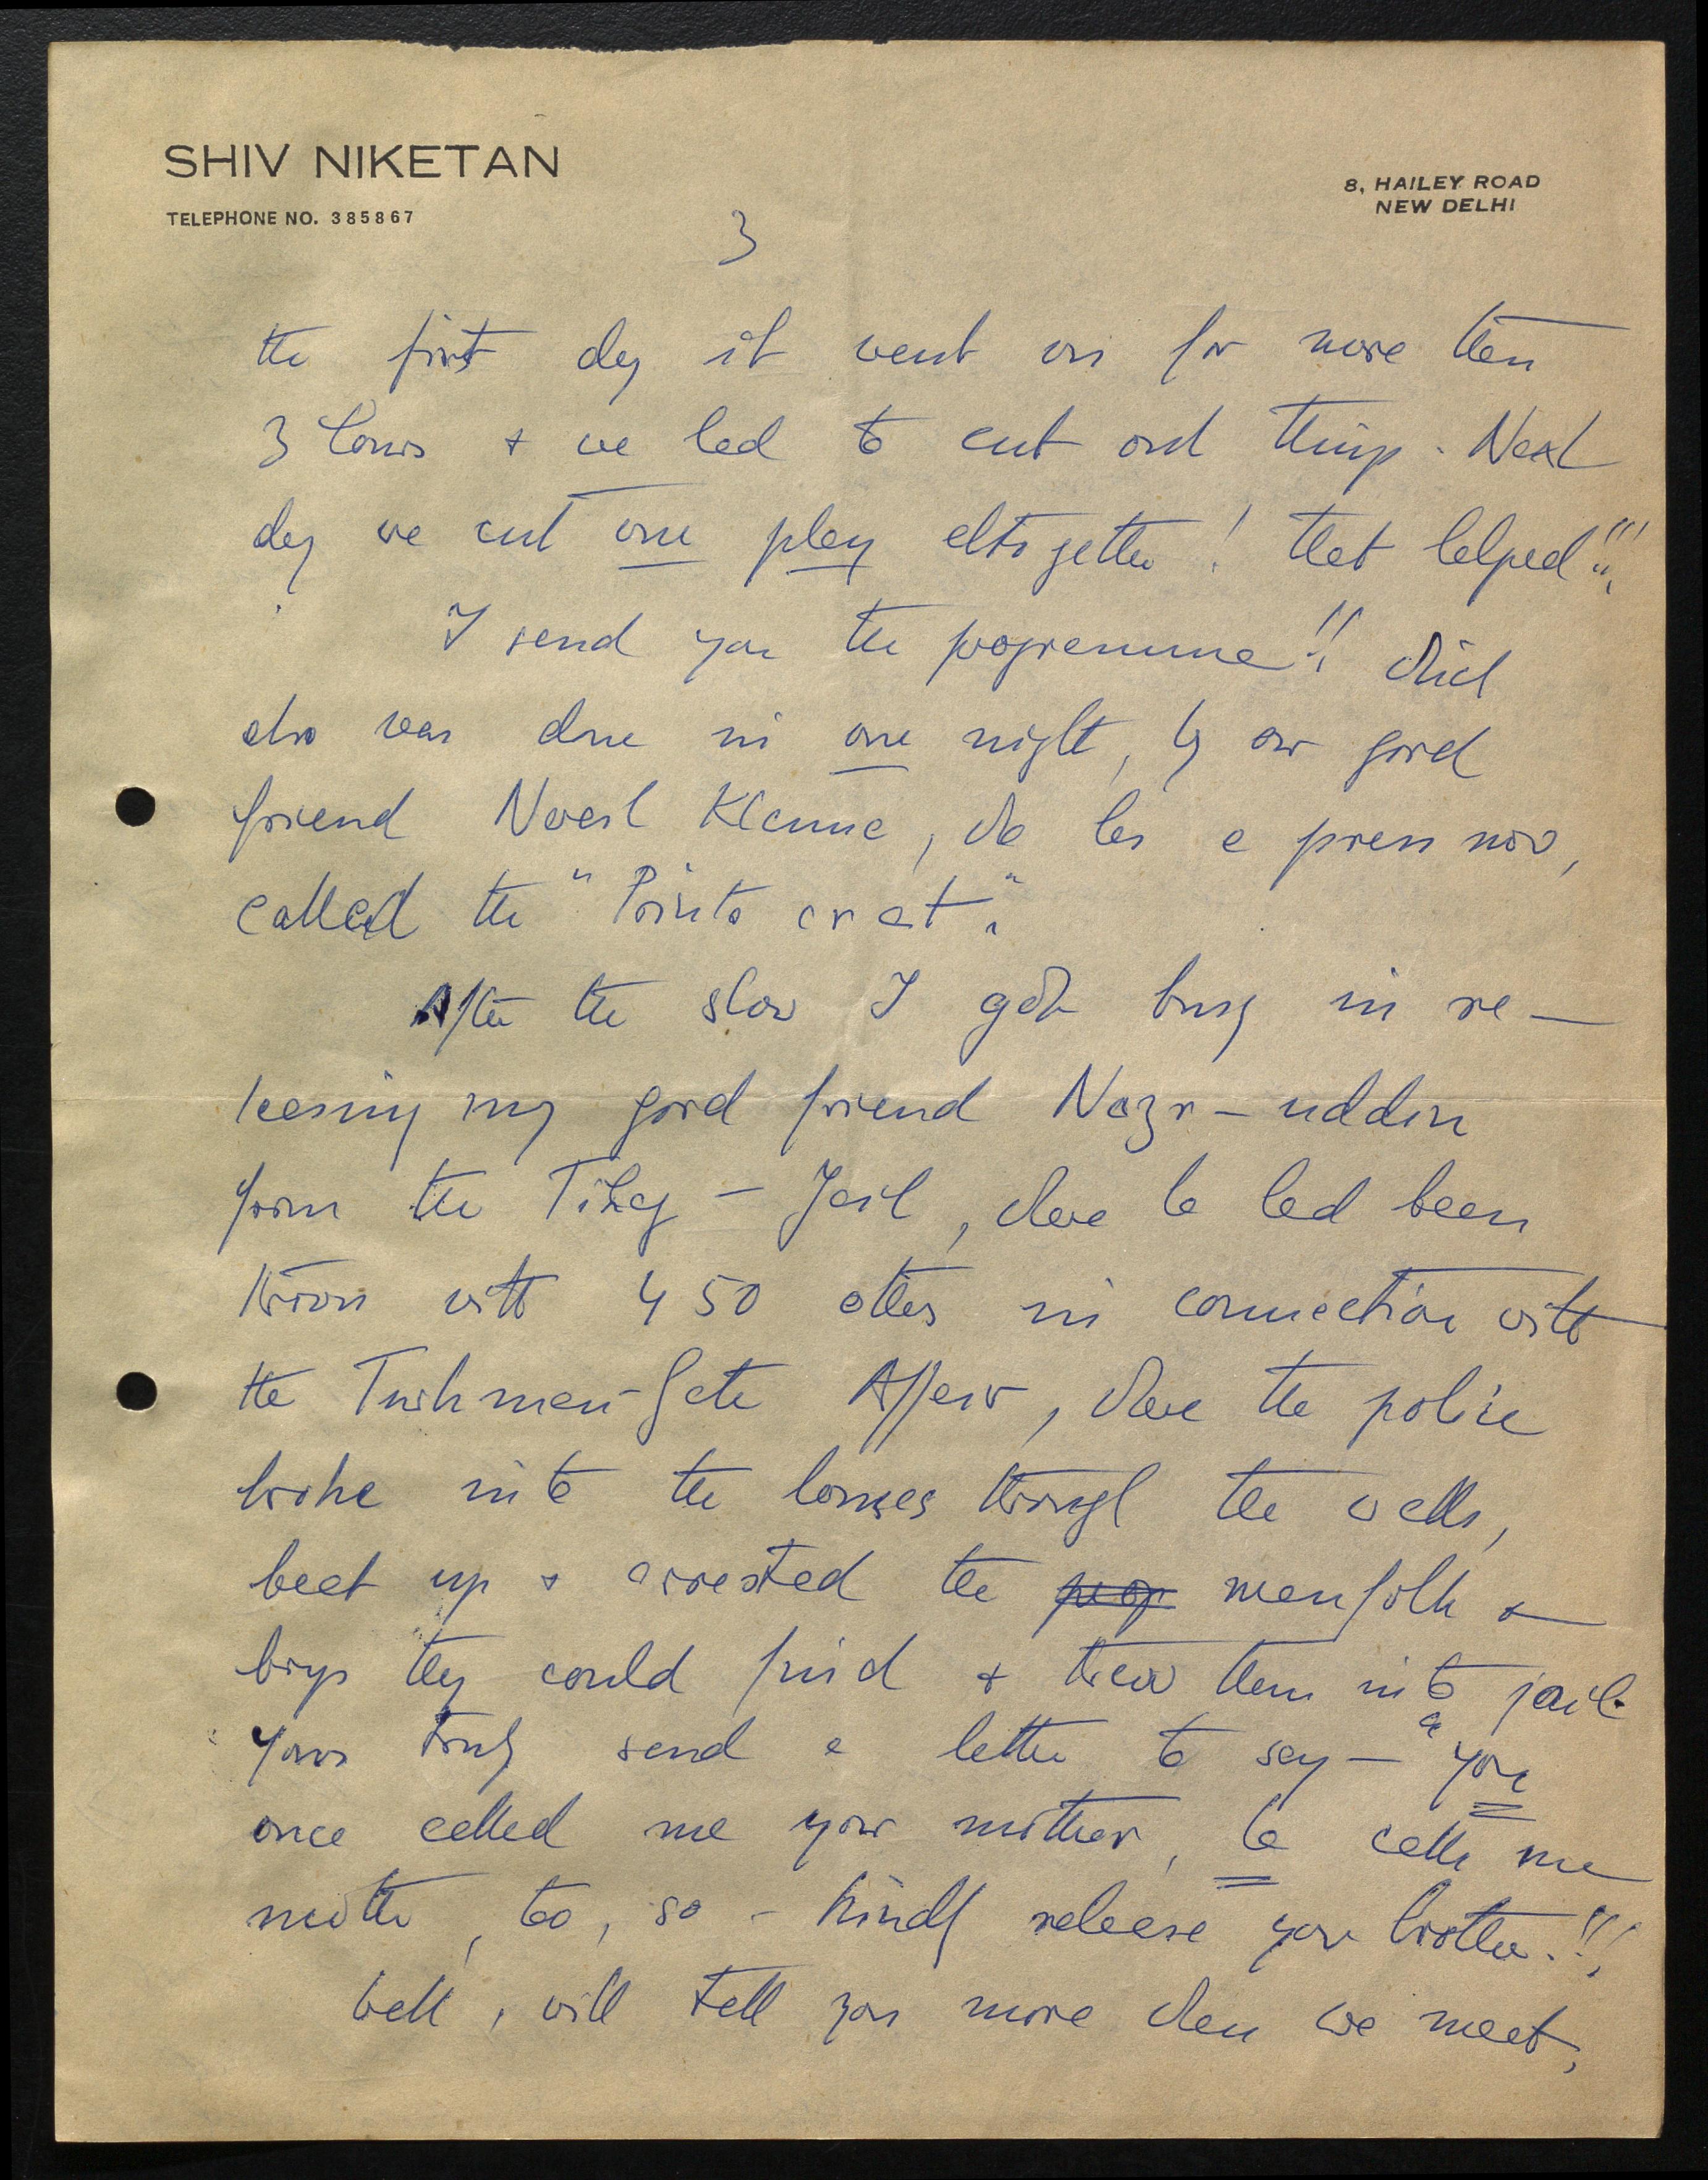 SHIV NIKETAN
TELEPHONE NO. 385867
8, HAILEY ROAD
NEW DELHI
3
the first day it went on for more then
3 hours & we had to cut out things. Next
day we cut one play altogether! that helped!!!
I send you the programme!! which
also was done in one night, by our good
friend Nawal Khanna, who has a press now,
called the "Printo crat".
After the show I got busy in re-
leasing my good friend Nazr-uddin
from the Tihay-Jail, where he had been
thrown with 450 others in connection with
the Turkman-Gate Affair, where the police
broke into the houses through the walls,
beat up & arrested the peop menfolk &
boys they could find & threw them into jail.
Yours truly send a letter to say - "you
once called me your mother, he calls me
mother, too, so - kindly release your brother.!!!
Well, will tell you more when we meet,